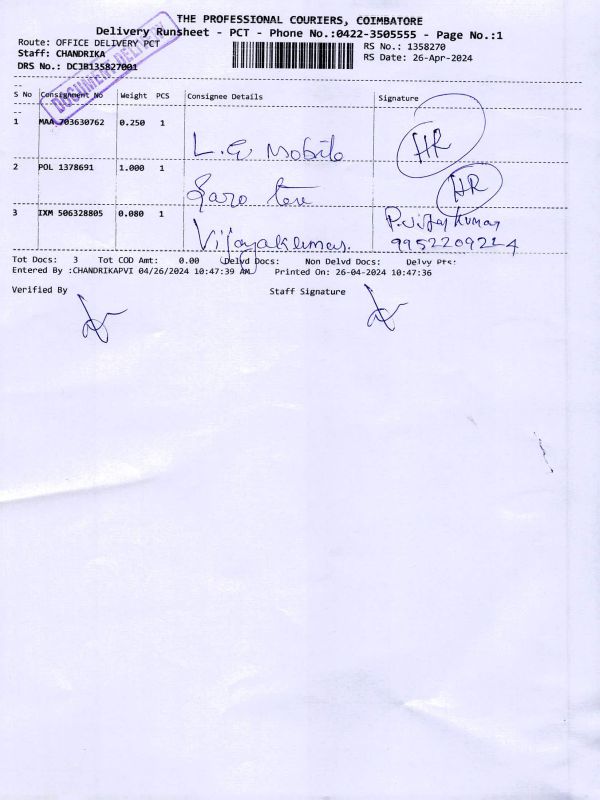 THE PROFESSIONAL COURIERS, COIMBATORE
Delivery Runsheet - PCT - Phone No.:0422-3505555 - Page No.:1
Route: OFFICE DELIVERY PCT
RS No.: 1358270
Staff: CHANDRIKA
RS Date: 26-Apr-2024
DRS No.: DCJB135827001
DOCUMENT DELIVERY
S No Consignment No Weight PCS Consignee Details Signature
1 MAA 703630762 0.250 1 HR
L.G Mobile
2 POL 1378691 1.000 1 HR
3 IXM 506328805 0.080 1 P.vijay kumar
Vijayakumar. 9952209224
Tot Docs: 3 Tot COD Amt: 0.00 Delvd Docs: Non Delvd Docs: Delvy Pts:
Entered By :CHANDRIKAPVI 04/26/2024 10:47:39 AM Printed On: 26-04-2024 10:47:36
Verified By Staff Signature